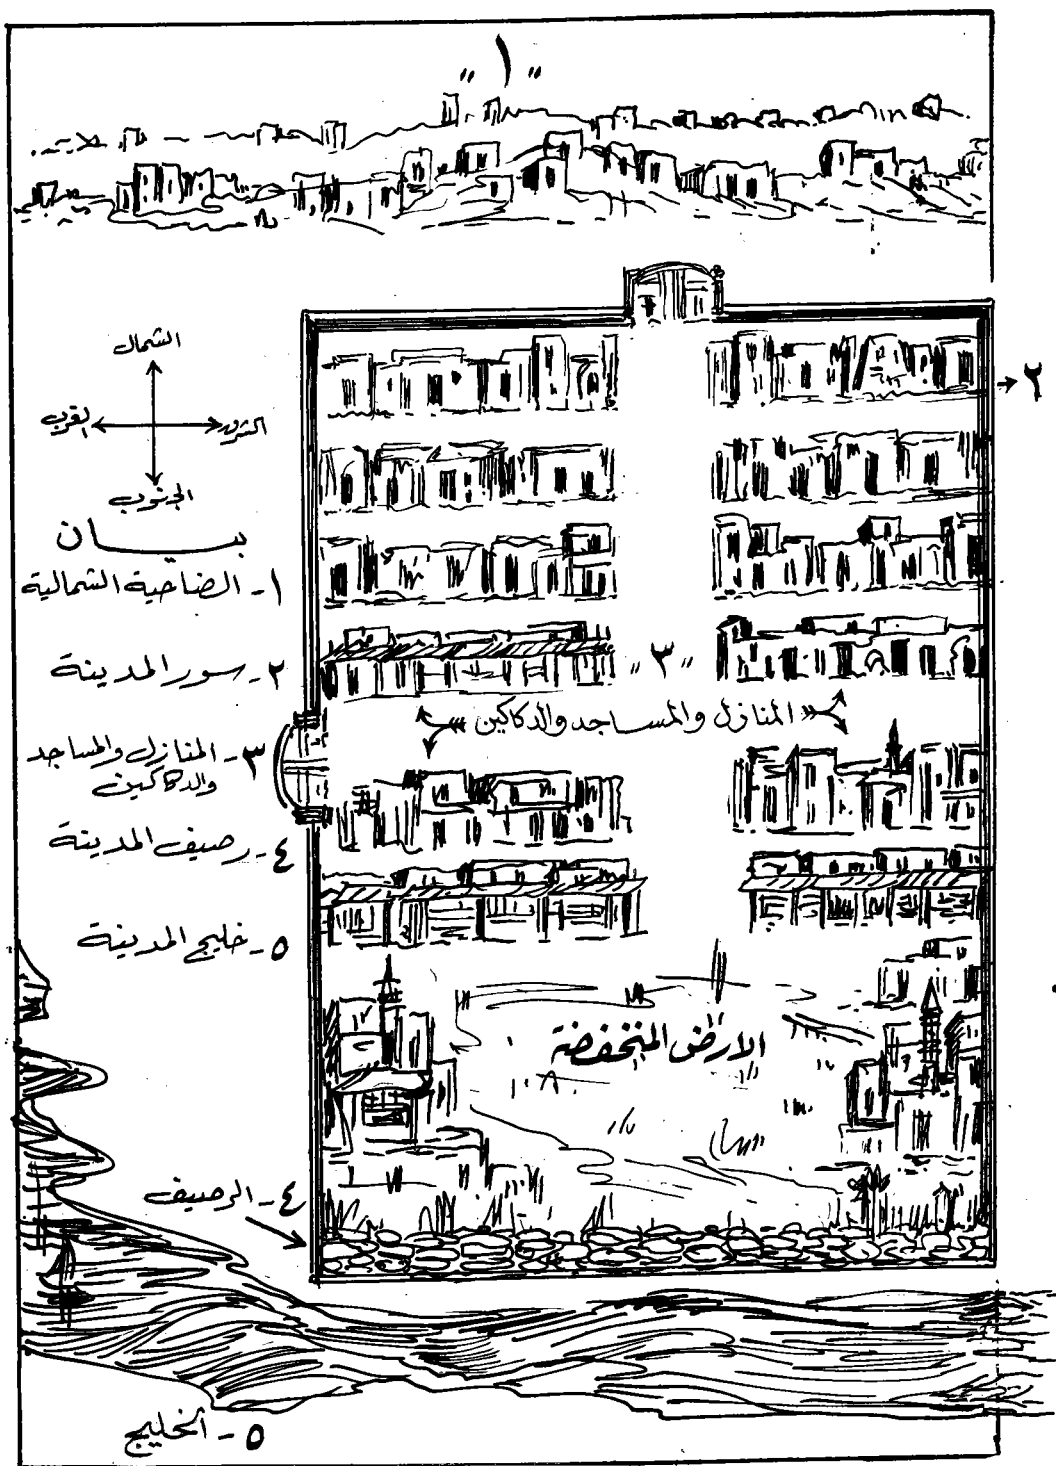 "١"
٢
الشمال
الغرب
الشرق
الجنوب
بيــان
١- الضاحية الشمالية
٢- سور المدينة
٣- المنازل والمساجد
والدكاكين
٤- رصيف المدينة
٥- خليج المدينة
"٣"
المنازل والمساجد والدكاكين
الارض المنخفضة
٤- الرصيف
٥- الخليج